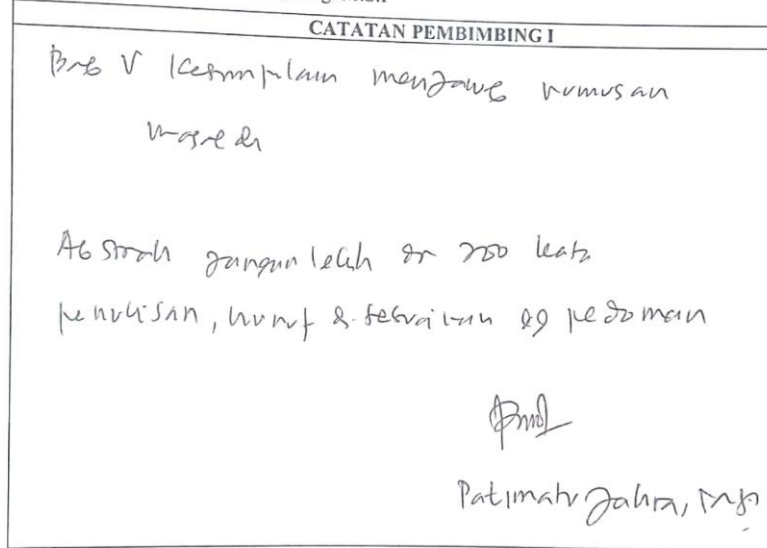 CATATAN PEMBIMBING I
Bab V Kesimpulan menjawab rumusan
masalah
Abstrak jangan lebih dr 200 kata
penulisan, huruf disesuaikan dg pedoman
Patimah Zahra,